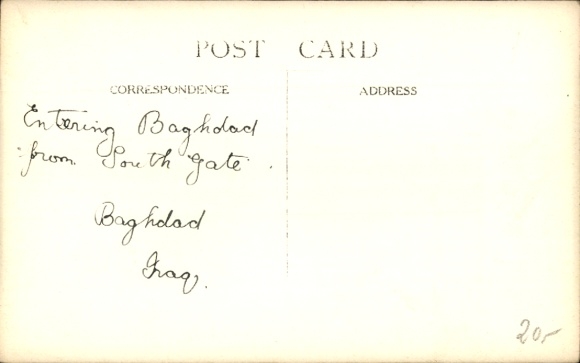 POST CARD
CORRESPONDENCE
ADDRESS
Entering Baghdad
from South Gate.
Baghdad
Iraq.
20-